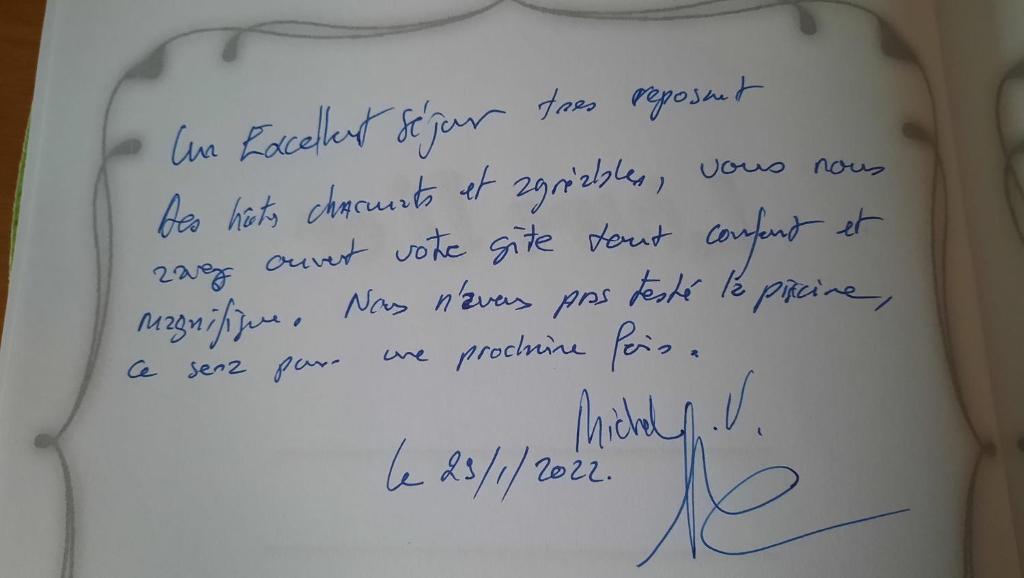 Un Excellent séjour tres reposant
Des hôtes charmants et agréables, vous nous
avez ouvert votre gîte tout confort et
magnifique. Nous n'avons pas testé la piscine,
ce sera pour une prochaine fois.
Michel .V.
le 29/1/2022.